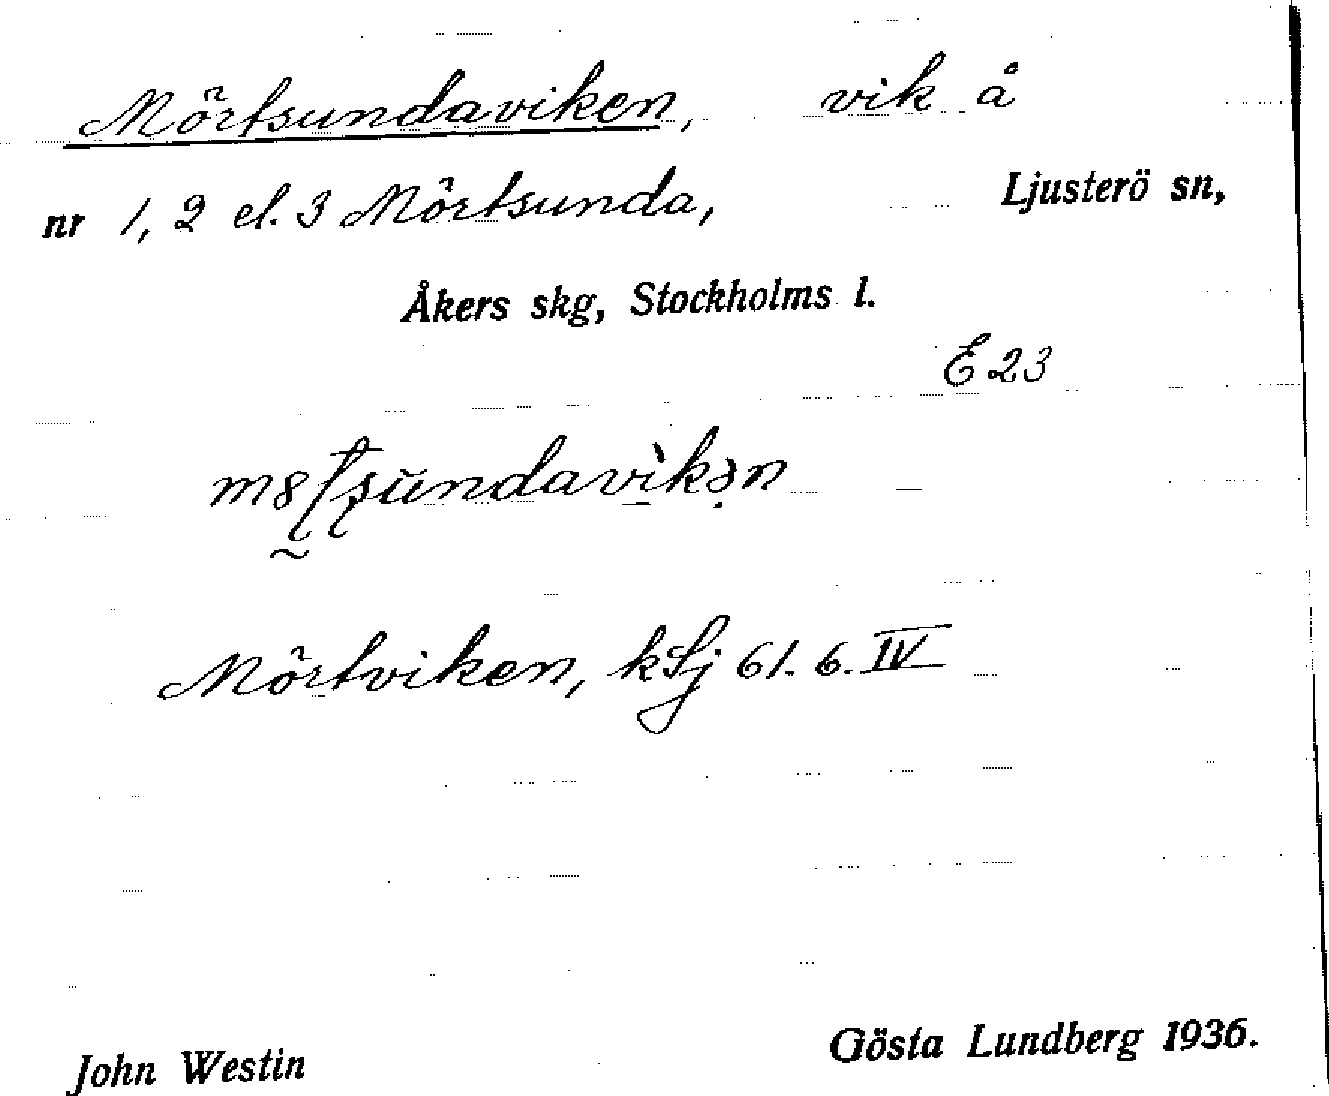 Mörtsundaviken, vik å
nr 1, 2 el. 3 Mörtsunda, Ljusterö sn,
Åkers skg, Stockholms l.
E 23
Mörtviken, kLj 61. 6. IV
John Westin Gösta Lundberg 1936.